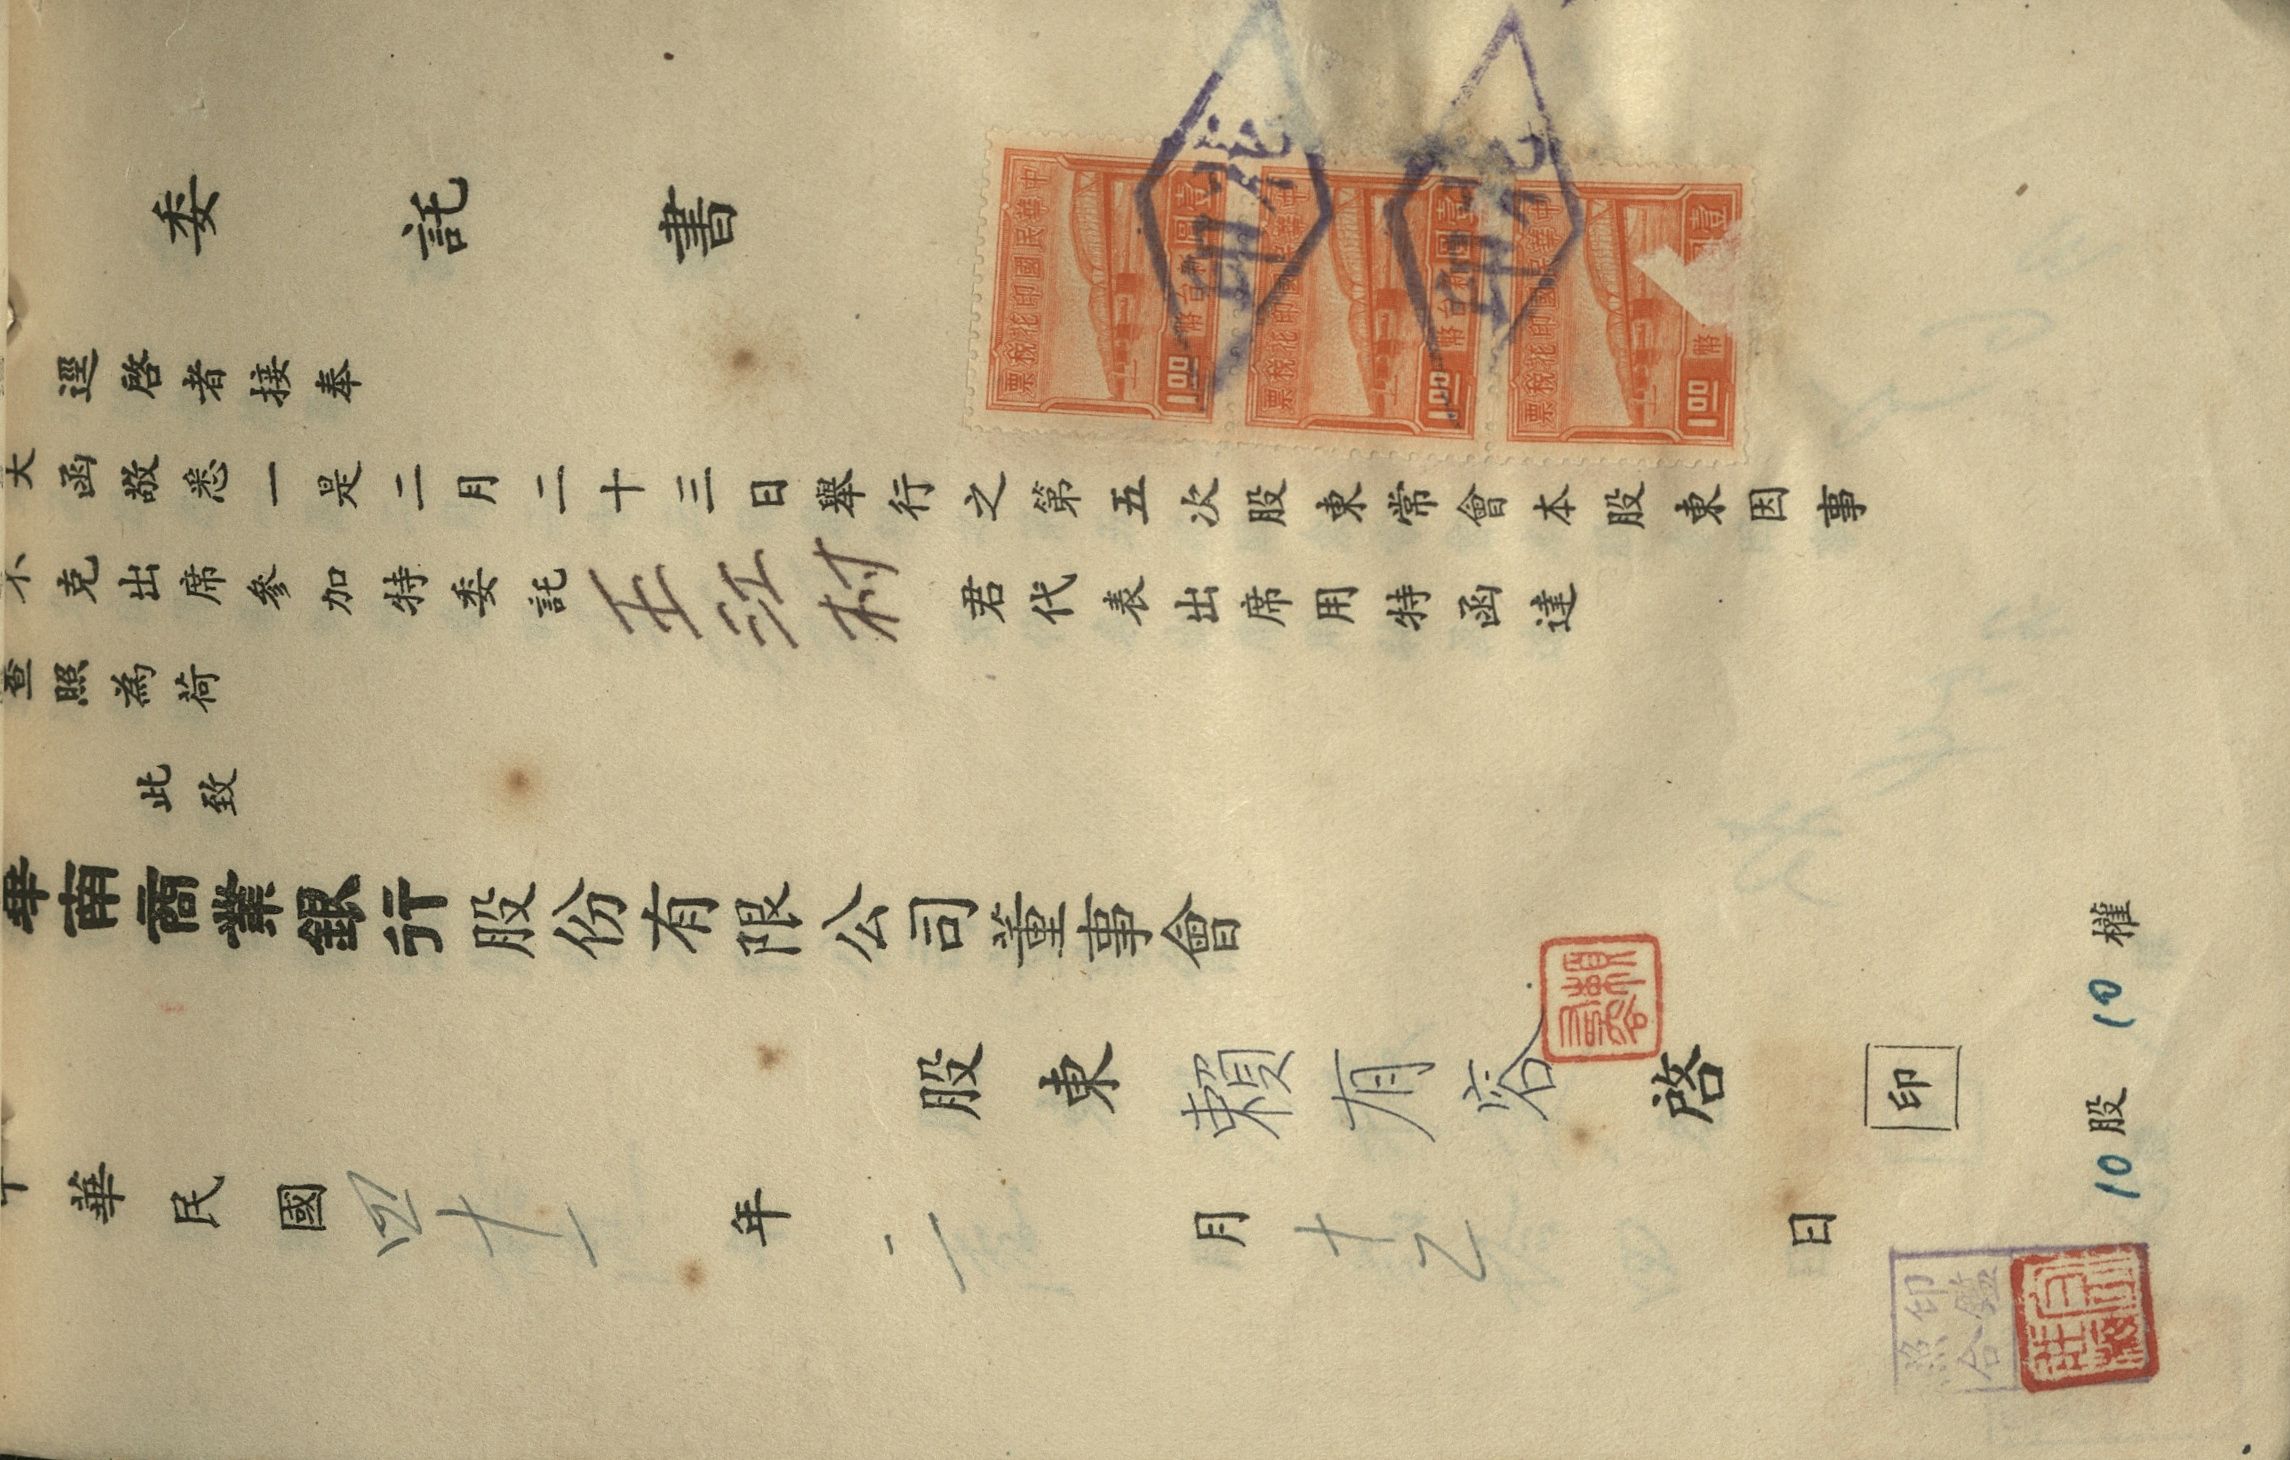 委託書
逕啓者接奉
大函敬悉一是二月二十三日舉行之第五次股東常會本股東因事
不克出席參加特委託王江村君代表出席用特函達
查照為荷
此致
華南商業銀行股份有限公司董事會
股東賴有容啓
印
中華民國四十一年二月十乙日
10股10權
中華民國印花稅票
壹圓
台幣
1.00
中華民國印花稅票
壹圓
台幣
1.00
中華民國印花稅票
壹
幣
1.00
印鑑
照合